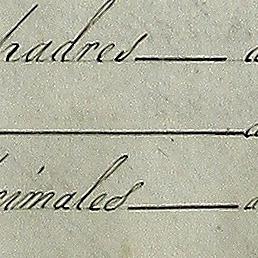 hadres — a
— a
nimales — a